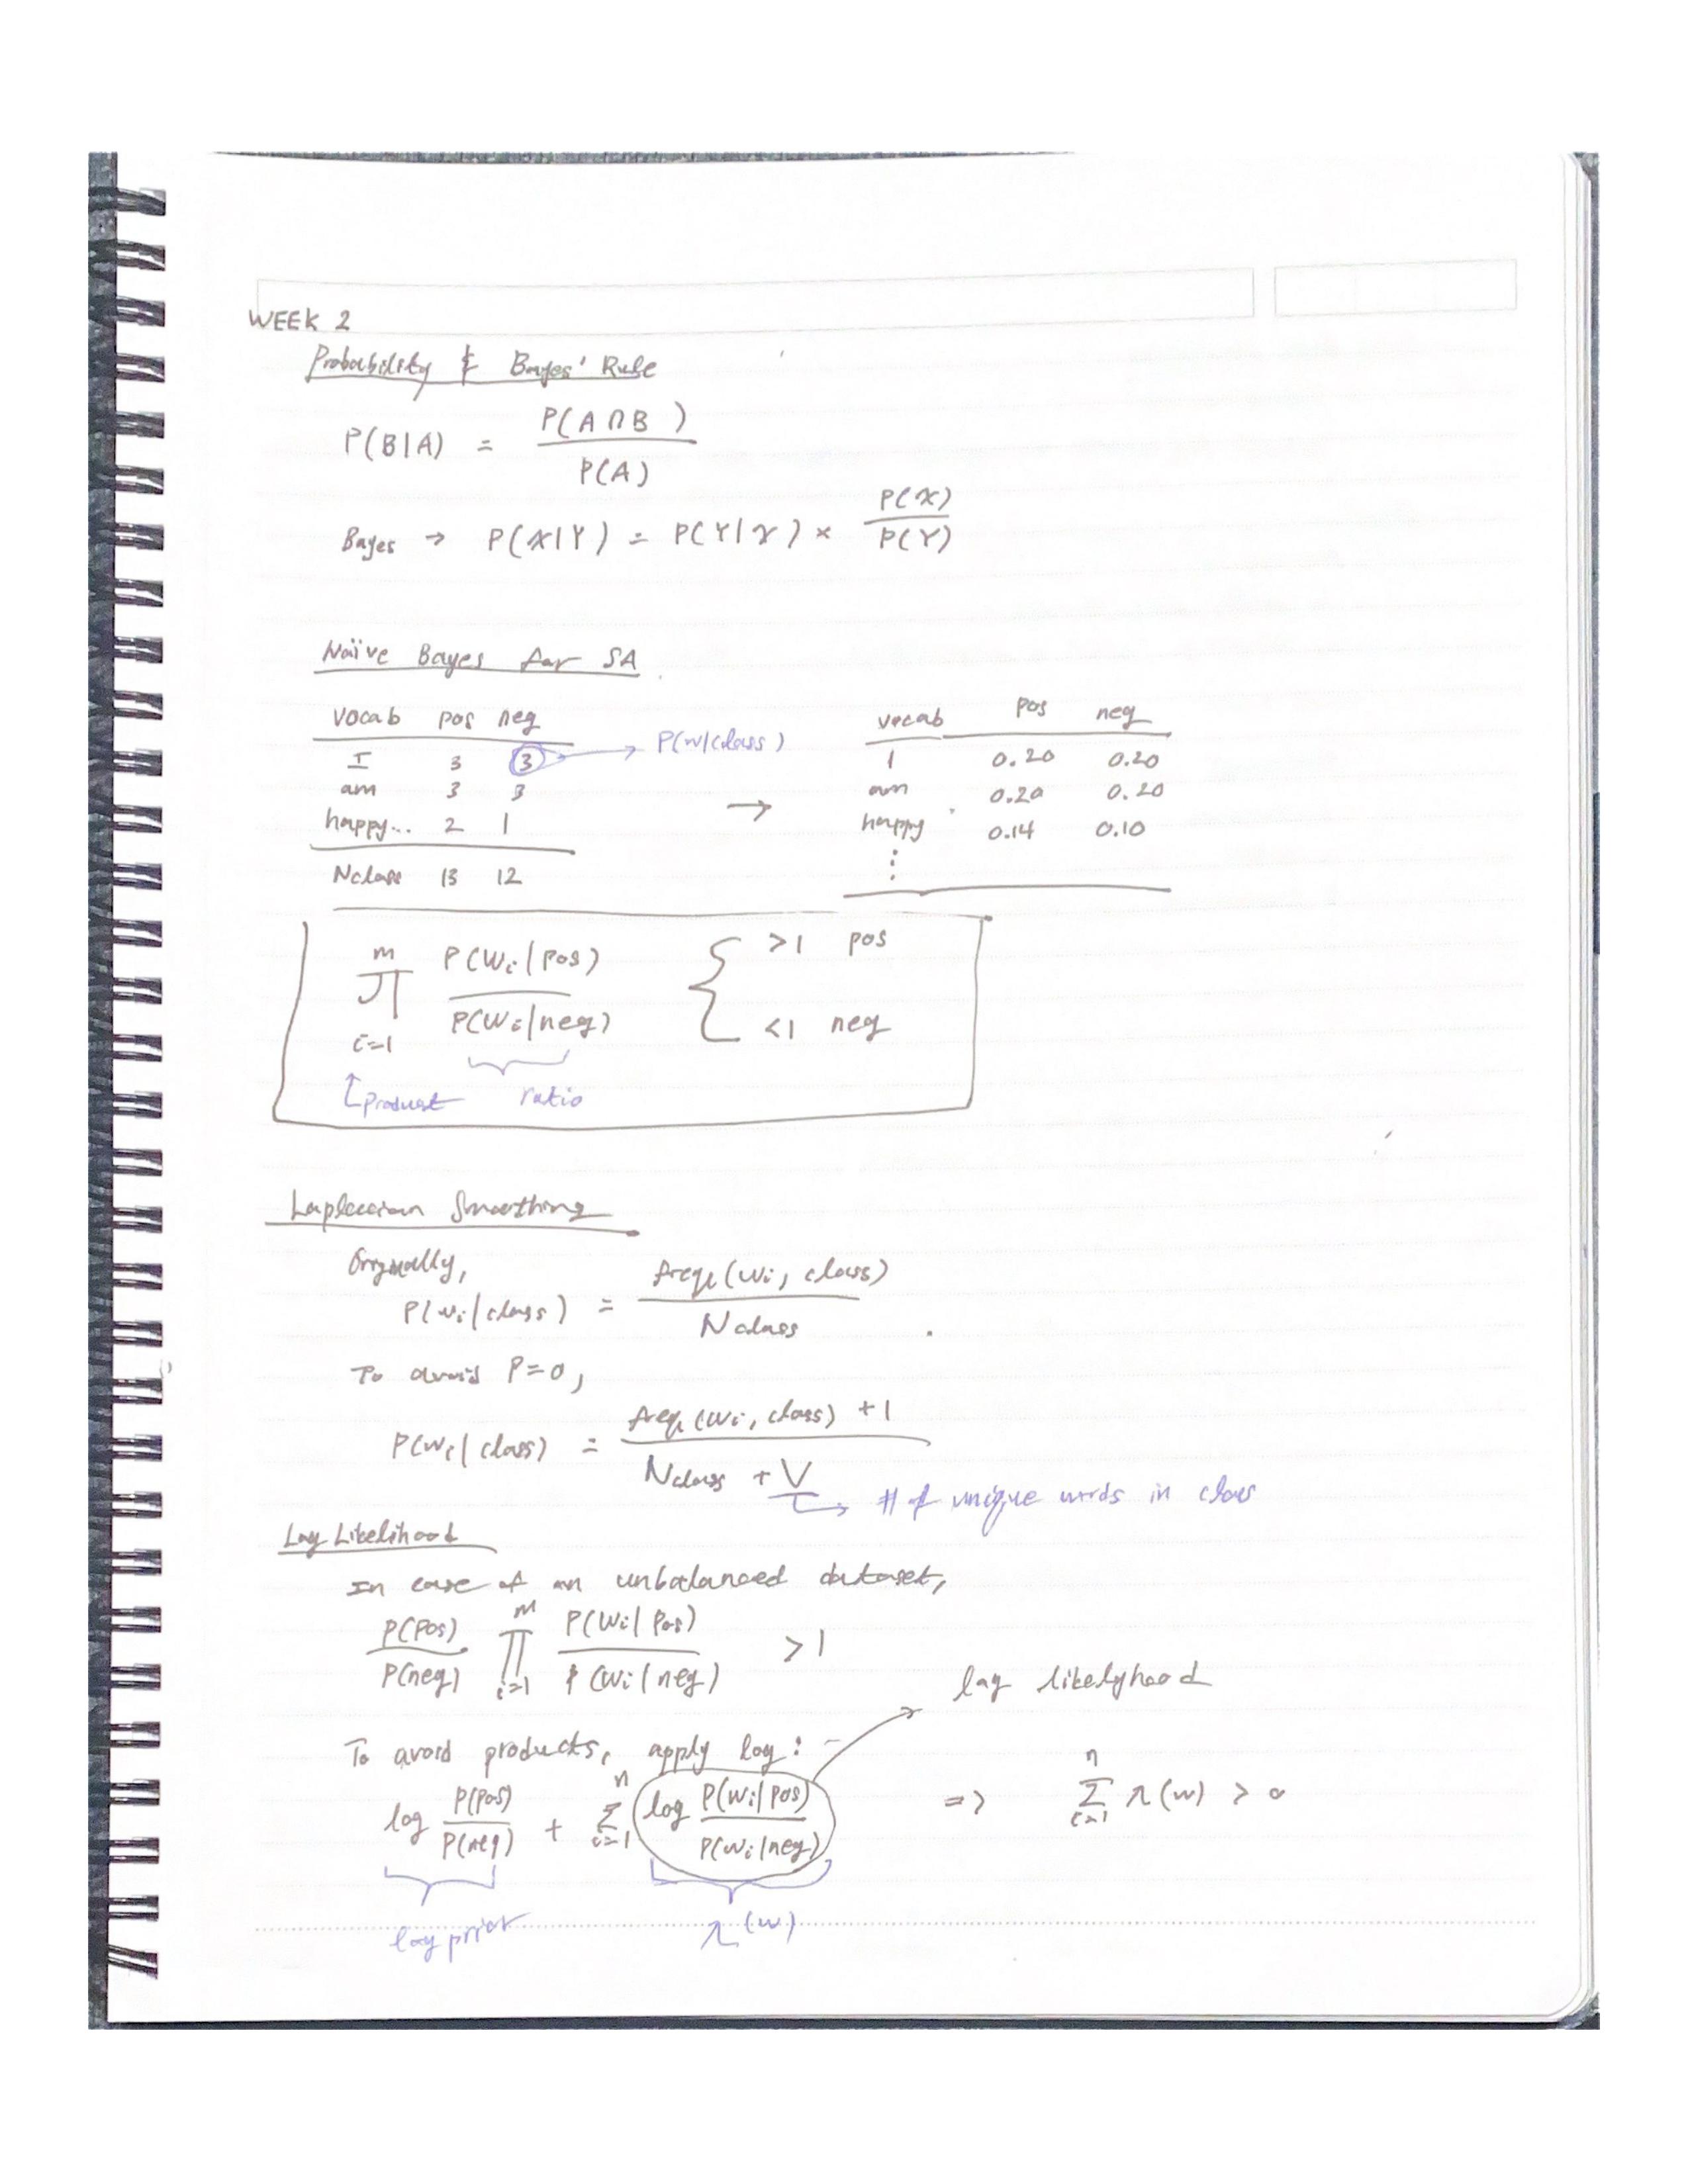 WEEK 2
Probability & Bayes' Rule
P(B|A) = P(A∩B) / P(A)
Bayes → P(X|Y) = P(Y|X) × P(X) / P(Y)
Naïve Bayes for SA
vocab pos neg
I 3 3 → P(w|class)
am 3 3
happy... 2 1
Nclass 13 12
→
vocab pos neg
I 0.20 0.20
am 0.20 0.20
happy 0.14 0.10
⋮
m ∏ i=1 P(wi|pos) / P(wi|neg) { >1 pos
<1 neg
↑ product ratio
Laplacian Smoothing
Originally,
P(wi|class) = freq(wi, class) / Nclass
To avoid P=0,
P(wi|class) = freq(wi, class) +1 / Nclass + V
→ # of unique words in class
Log Likelihood
In case of an unbalanced dataset,
P(pos) / P(neg) m ∏ i=1 P(wi|pos) / P(wi|neg) >1
log likelyhood
To avoid products, apply log:
log P(pos) / P(neg) + n Σ i=1 log P(wi|pos) / P(wi|neg) => n Σ i=1 λ(w) > 0
log prior λ(w)